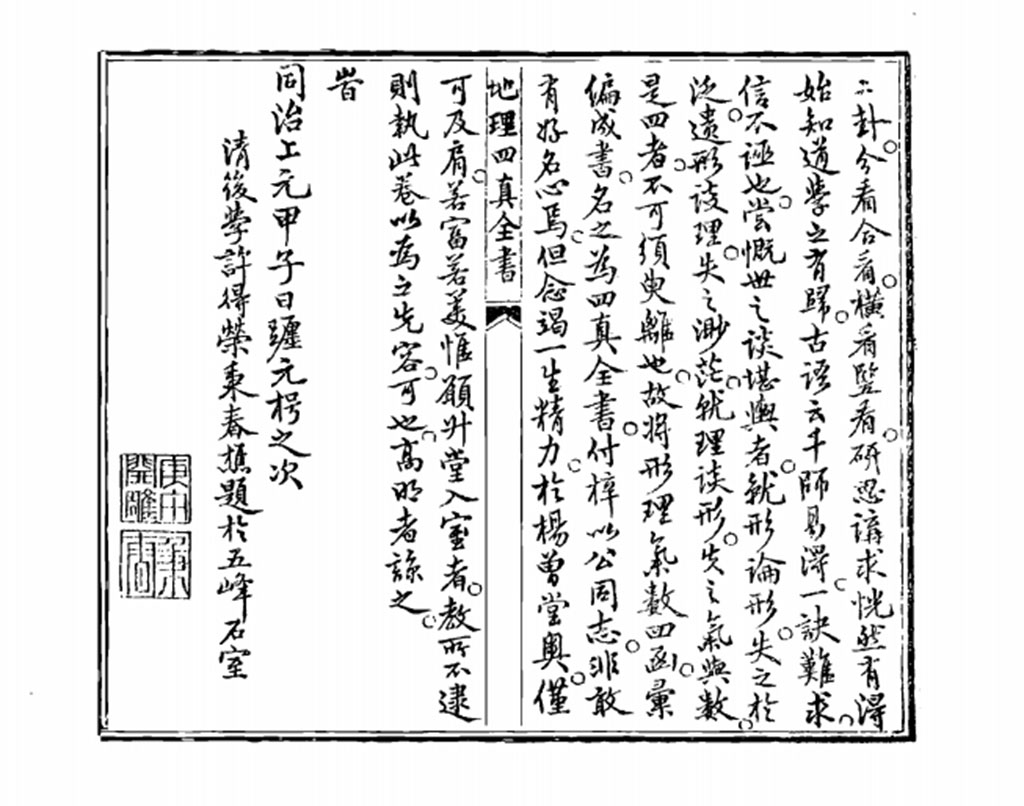 二卦分看合看橫看豎看研思講求恍然有得
始知道學之有歸古語云千師易得一訣難求
信不誣也嘗慨世之談堪輿者就形論形失之於
泛遺形談理失之渺茫就理談形失之氣與數
是四者不可須臾離也故將形理氣數四函彙
編成書名之為四真全書付梓以公同志非敢
有好名心焉但念竭一生精力於楊曾堂奧僅
地理四真全書
可及肩若富若美惟願升堂入室者教所不逮
則執此卷以為之先容可也高明者諒之
旹
同治上元甲子日躔元枵之次
清後學許得榮秉春樵題於五峰石室